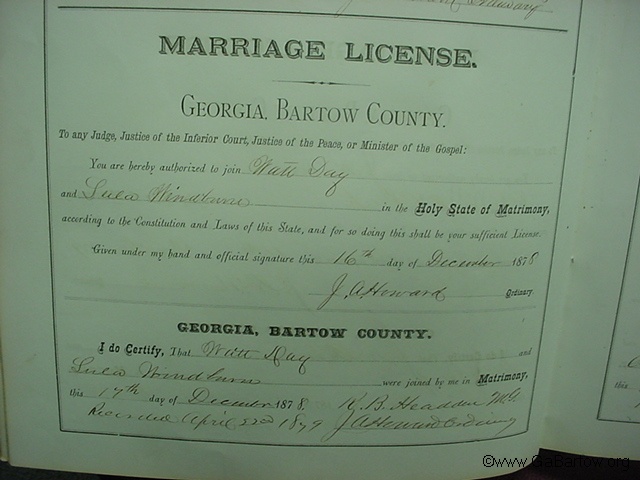 MARRIAGE LICENSE.
GEORGIA, BARTOW COUNTY.
To any Judge, Justice of the Inferior Court, Justice of the Peace, or Minister of the Gospel:
You are hereby authorized to join Watt Day
and Lula Windburn in the Holy State of Matrimony,
according to the Constitution and Laws of this State, and for so doing this shall be your sufficient License.
Given under my hand and official signature this 16th day of December 1878
J. A. Howard Ordinary.
GEORGIA, BARTOW COUNTY.
I do Certify, That Watt Day and
Lula Windburn were joined by me in Matrimony,
this 17th day of December 1878. R. B. Headden M.G.
Recorded April 22nd 1879 J A Howard Ordinary
©www.Gabartow.org